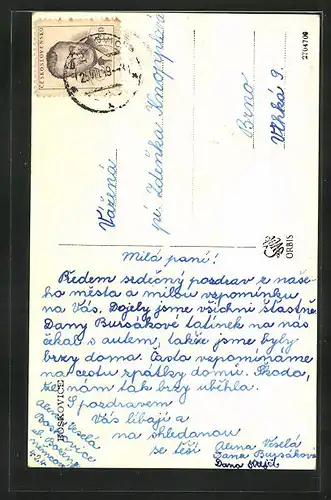 ČESKOSLOVENSKO
2704700
Vážená
pí. Zdeňka
Brno
Vlhká 9.
ORBIS
BOSKOVICE
Milá paní!
Předem srdečný pozdrav z naše-
ho města a milou vzpomínku
na Vás. Dojely jsme všichni šťastně
Dany Bursákové tatínek na nás
čekal s autem, takže jsme byly
brzy doma. Často vzpomínáme
na cestu zpátky domů. Škoda,
že nám tak brzy uběhla.
S pozdravem
Vás líbají a
na shledanou
se těší
Alena Veselá
Dana Bursáková
Dana
Alena Veselá
Boskovice